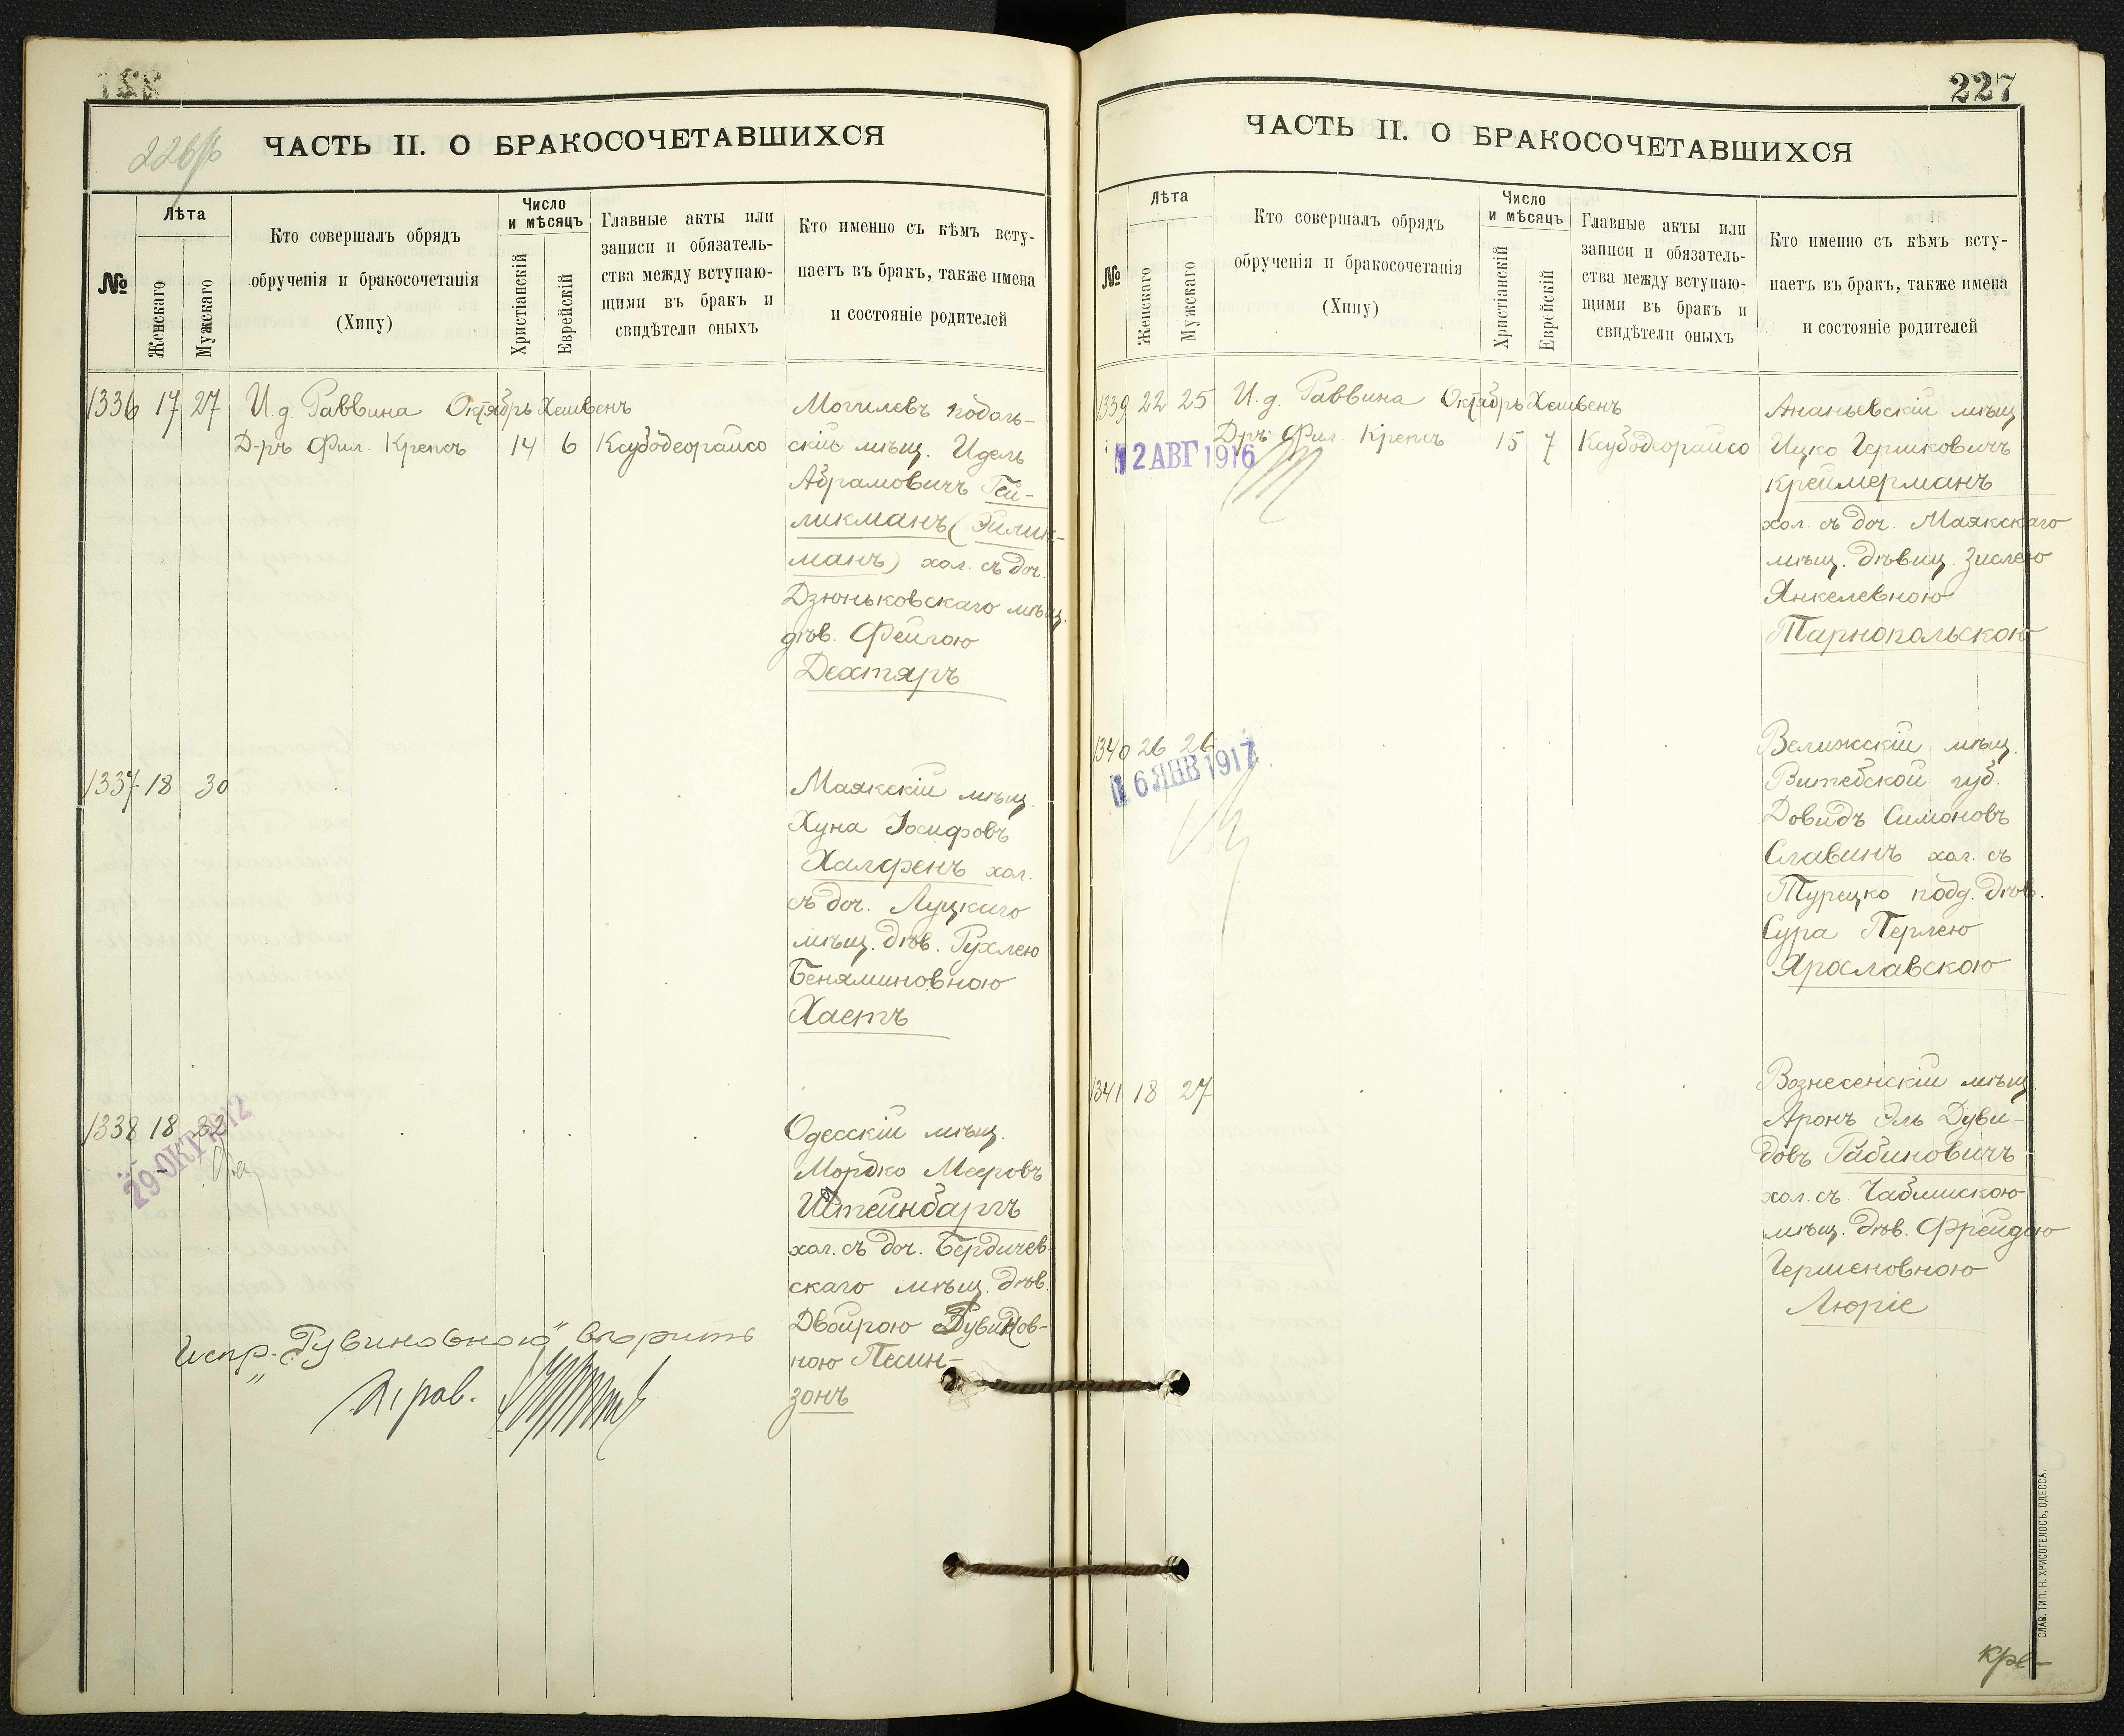 226/б
ЧАСТЬ II. О БРАКОСОЧЕТАВШИХСЯ
№
Лѣта
Женскаго
Мужскаго
Кто совершалъ обрядъ
обрученія и бракосочетанія
(Хипу)
Число
и мѣсяцъ
Христіанскій
Еврейскій
Главные акты или
записи и обязатель-
ства между вступаю-
щими въ бракъ и
свидѣтели оныхъ
Кто именно съ кѣмъ всту-
паетъ въ бракъ, также имена
и состояніе родителей
1336 17 27 И.д. Раввина Октябрь Хешвенъ
Д-ръ Фил. Крепсъ 14 6 Ксубодеорайсо
Могилевъ подоль-
скій мѣщ. Идель
Абрамовичъ Гей-
ликманъ (Эйлик-
манъ) хол. съ доч.
Дзюньковскаго мѣщ.
дѣв. Фейгою
Дехтяръ
1337 18 30
Маякскій мѣщ.
Хуна Іосифовъ
Халфенъ хол.
съ доч. Луцкаго
мѣщ. дѣв. Рухлею
Беняминовною
Хаетъ
1338 18 32
29 ОКТ 1912
Одесскій мѣщ.
Мордко Мееровъ
Штейнбаргъ
хол. съ доч. Бердичев-
скаго мѣщ. дѣв.
Двойрою Рувинов-
ною Песин-
зонъ
Испр. „Рувиновною" вѣрить
227
ЧАСТЬ II. О БРАКОСОЧЕТАВШИХСЯ
№
Лѣта
Женскаго
Мужскаго
Кто совершалъ обрядъ
обрученія и бракосочетанія
(Хипу)
Число
и мѣсяцъ
Христіанскій
Еврейскій
Главные акты или
записи и обязатель-
ства между вступаю-
щими въ бракъ и
свидѣтели оныхъ
Кто именно съ кѣмъ всту-
паетъ въ бракъ, также имена
и состояніе родителей
1339 22 25 И.д. Раввина Октябрь Хешвенъ
Д-ръ Фил. Крепсъ 15 7 Ксубодеорайсо
12 АВГ 1916
Ананьевскій мѣщ
Ицко Гершковичъ
Креймерманъ
хол. съ доч. Маякскаго
мѣщ. дѣвиц. Зислею
Янкелевною
Тарнопольскою
1340 26 26
16 ЯНВ 1917
Велижскій мѣщ.
Витебской губ.
Довидъ Симоновъ
Славинъ хол. съ
Турецко подд. дѣв.
Сура Перлею
Ярославскою
1341 18 27
Вознесенскій мѣщ.
Аронъ Эль Дуви-
довъ Рабиновичъ
хол. съ Чаблискою
мѣщ. дѣв. Фрейдою
Гершеновною
Люріе
СЛАВ. ТИП. Н. ХРИСОГЕЛОСЪ, ОДЕССА.